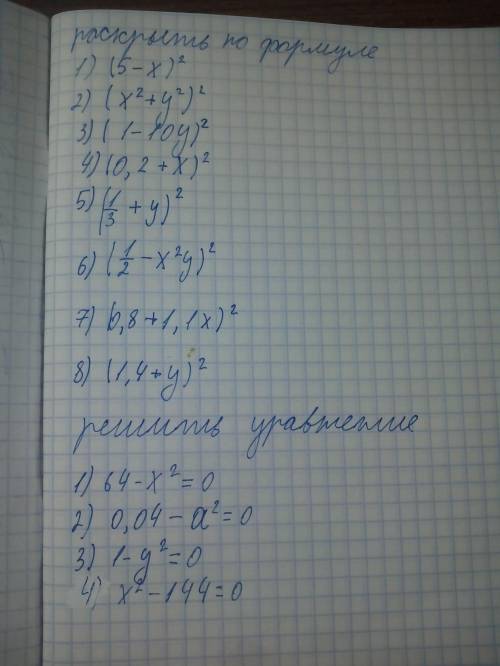 раскрыть по формуле
1) (5-x)²
2) (x²+y²)²
3) (1-10y)²
4) (0,2+x)²
5) (1/3+y)²
6) (1/2-x²y)²
7) (0,8+1,1x)²
8) (1,4+y)²
решить уравнение
1) 64-x²=0
2) 0,04-a²=0
3) 1-y²=0
4) x²-144=0